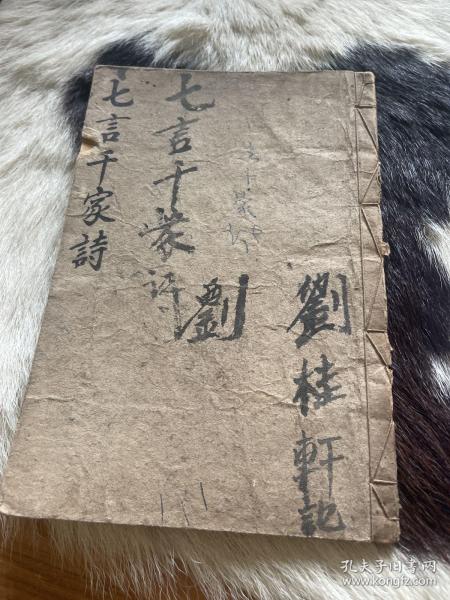 劉桂軒記
劉
七言千家詩
七言千家詩
孔夫子旧书网
www.kongfz.com